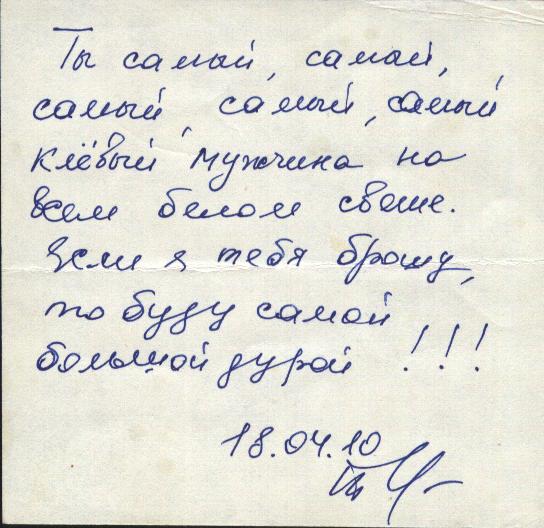 Ты самый, самый,
самый, самый, самый
клёвый мужчина на
всем белом свете.
Если я тебя брошу,
то буду самой
большой дурой !!!
18.04.10